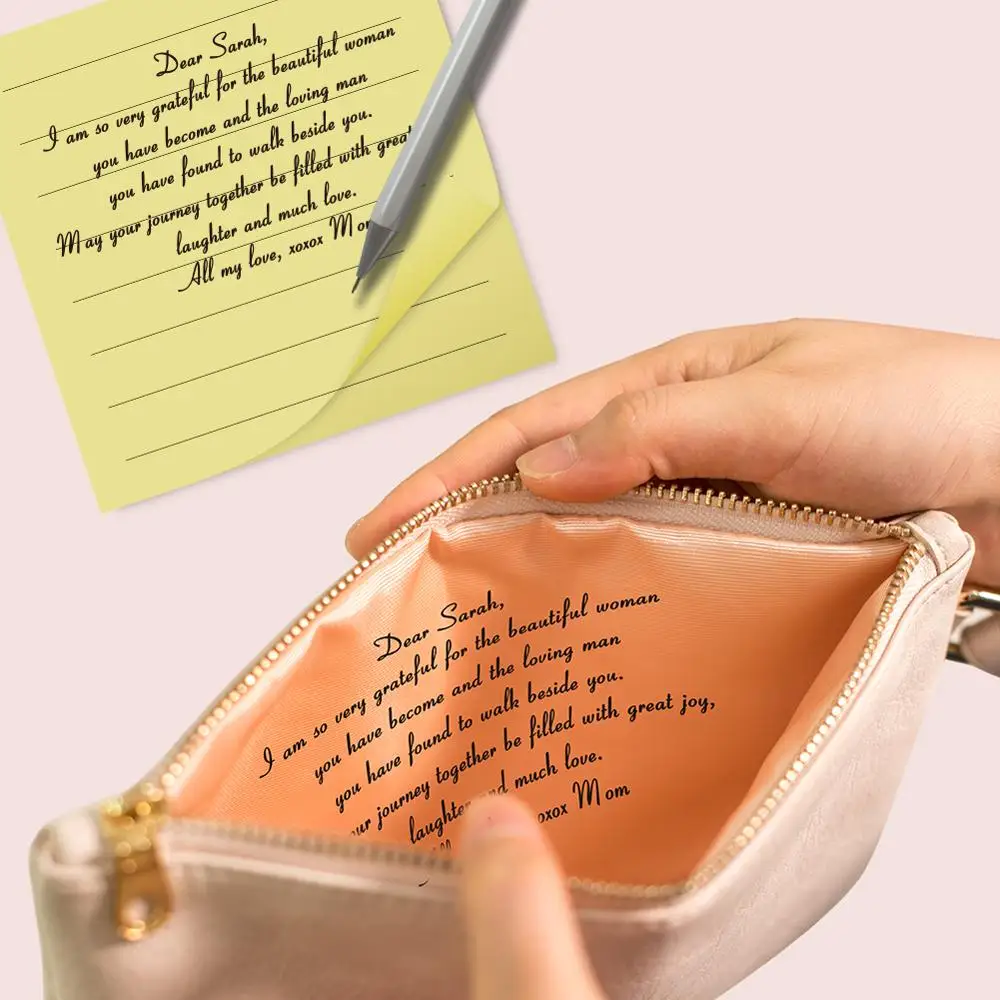 Dear Sarah,
I am so very grateful for the beautiful woman
you have become and the loving man
you have found to walk beside you.
May your journey together be filled with great
laughter and much love.
All my love, xoxox Mom
Dear Sarah,
I am so very grateful for the beautiful woman
you have become and the loving man
you have found to walk beside you.
journey together be filled with great joy,
laughter and much love.
xoxox Mom